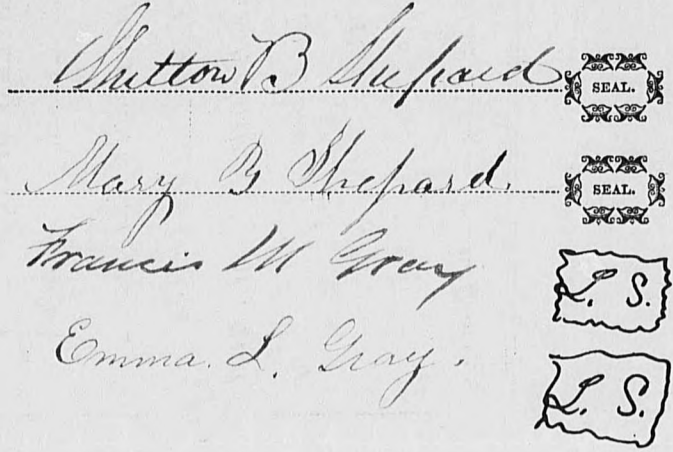 Shelton B Shepard SEAL.
Mary B Shepard. SEAL.
Francis M Gray L. S.
Emma. L. Gray. L. S.